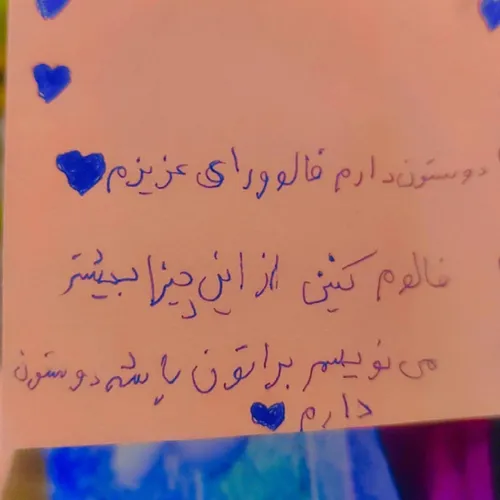 دوستون دارم فالوورای عزیزم
فالوم کنین از این چیزا بیشتر
می نویسم براتون باشه دوستون
دارم